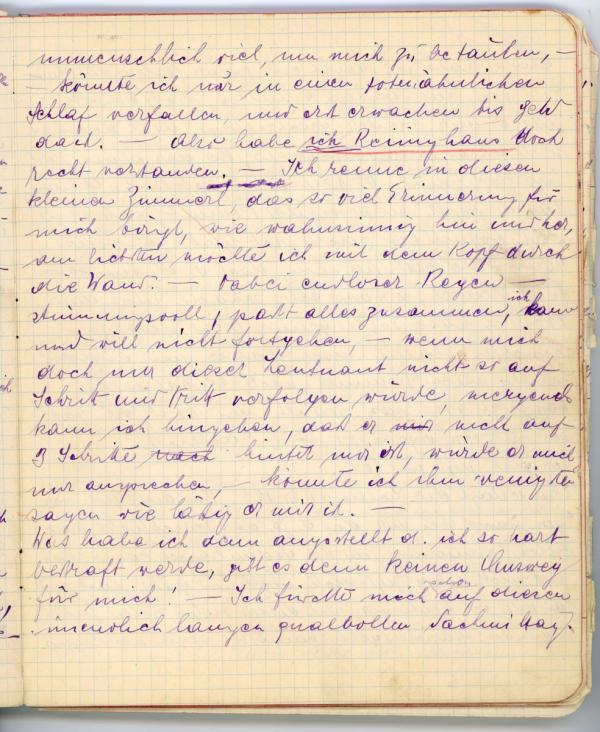 unmenschlich viel, um mich zu betäuben, –
– könnte ich nur in einen totenähnlichen
Schlaf verfallen, und erst erwachen bis Geld
da ist. – Also habe ich Reininghaus doch
recht verstanden. – Ich renne in diesen
kleinen Zimmerl, das so viel Erinnerung für
mich birgt, wie wahnsinnig hin und her,
am liebsten möchte ich mit dem Kopf durch
die Wand. – Dabei endloser Regen –
stimmungsvoll, paßt alles zusammen, ich kann
und will nicht fortgehen, – wenn mich
doch nur dieser Leutnant nicht so auf
Schritt und Tritt verfolgen würde, nirgends
kann ich hingehen, daß er mir nicht auf
3 Schritte nach hinter mir ist, würde er mich
nur ansprechen, – könnte ich ihm wenigsten
sagen wie lästig er mir ist. –
Was habe ich denn angestellt d. ich so hart
bestraft werde, gibt es denn keinen Ausweg
für mich! – Ich fürchte mich schon auf diesen
unendlich langen qualvollen Nachmittag.